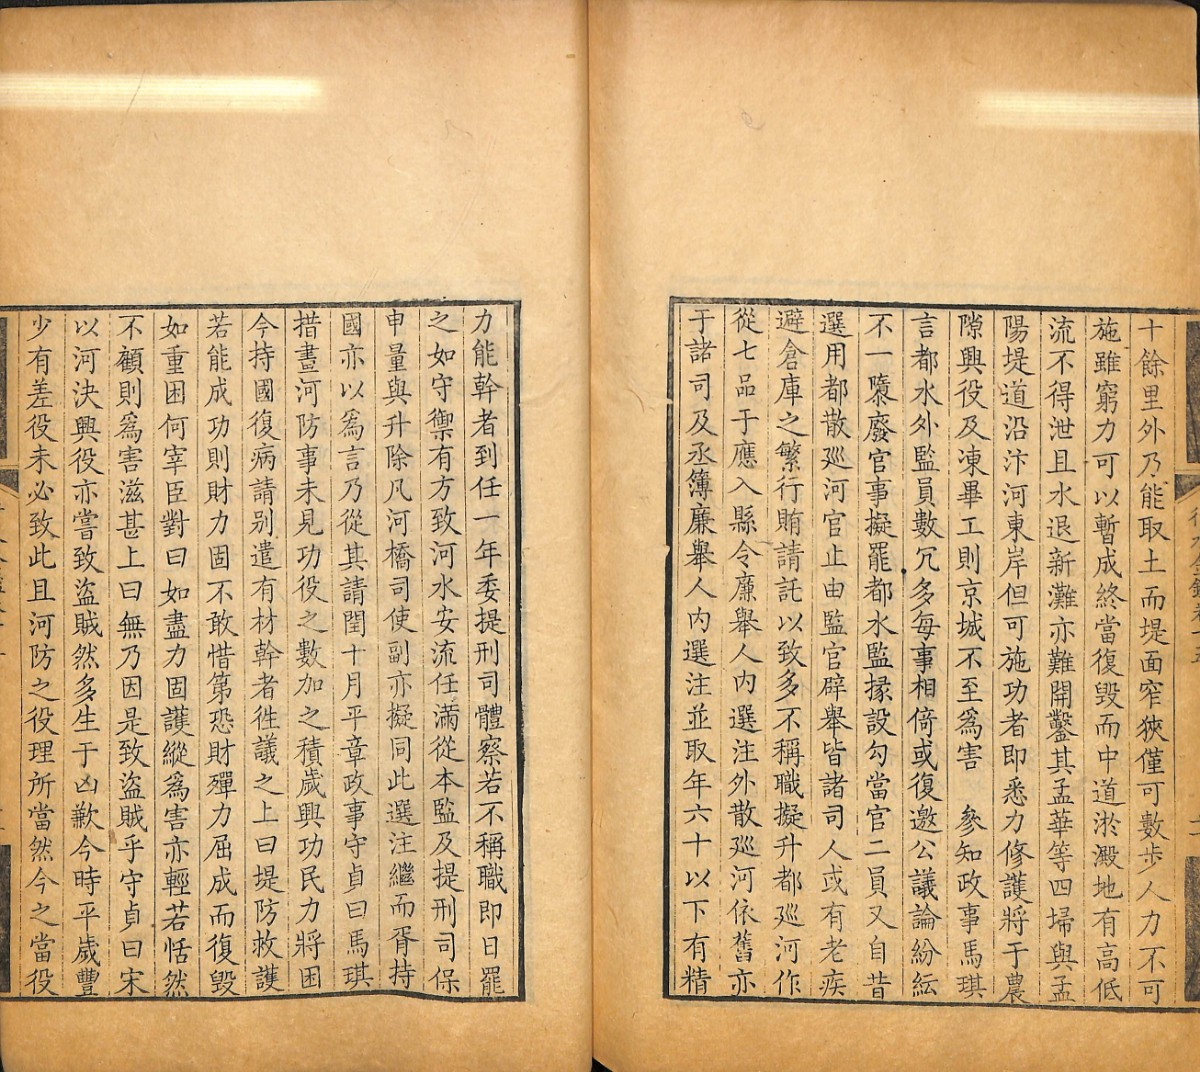 十餘里外乃能取土而堤面窄狹僅可數步人力不可
施雖窮力可以暫成終當復毀而中道淤澱地有高低
流不得泄且水退新灘亦難開鑿其孟華等四埽與孟
陽堤道沿汴河東岸但可施功者即悉力修護將于農
隙興役及凍畢工則京城不至爲害　參知政事馬琪
言都水外監員數冗多每事相倚或復邀公議論紛紜
不一隳廢官事擬罷都水監掾設勾當官二員又自昔
選用都散廵河官止由監官辟舉皆諸司人或有老疾
避倉庫之繁行賄請託以致多不稱職擬升都廵河作
從七品于應入縣令廉舉人內選注外散廵河依舊亦
于諸司及丞簿廉舉人內選注並取年六十以下有精
力能幹者到任一年委提刑司體察若不稱職即日罷
之如守禦有方致河水安流任滿從本監及提刑司保
申量與升除凡河橋司使副亦擬同此選注繼而胥持
國亦以爲言乃從其請閏十月平章政事守貞曰馬琪
措畫河防事未見功役之數加之積歲興功民力將困
今持國復病請别遣有材幹者徃議之上曰堤防救護
若能成功則財力固不敢惜第恐財殫力屈成而復毀
如重困何宰臣對曰如盡力固護縱爲害亦輕若恬然
不顧則爲害滋甚上曰無乃因是致盜賊乎守貞曰宋
以河決興役亦嘗致盜賊然多生于凶歉今時平歲豐
少有差役未必致此且河防之役理所當然今之當役